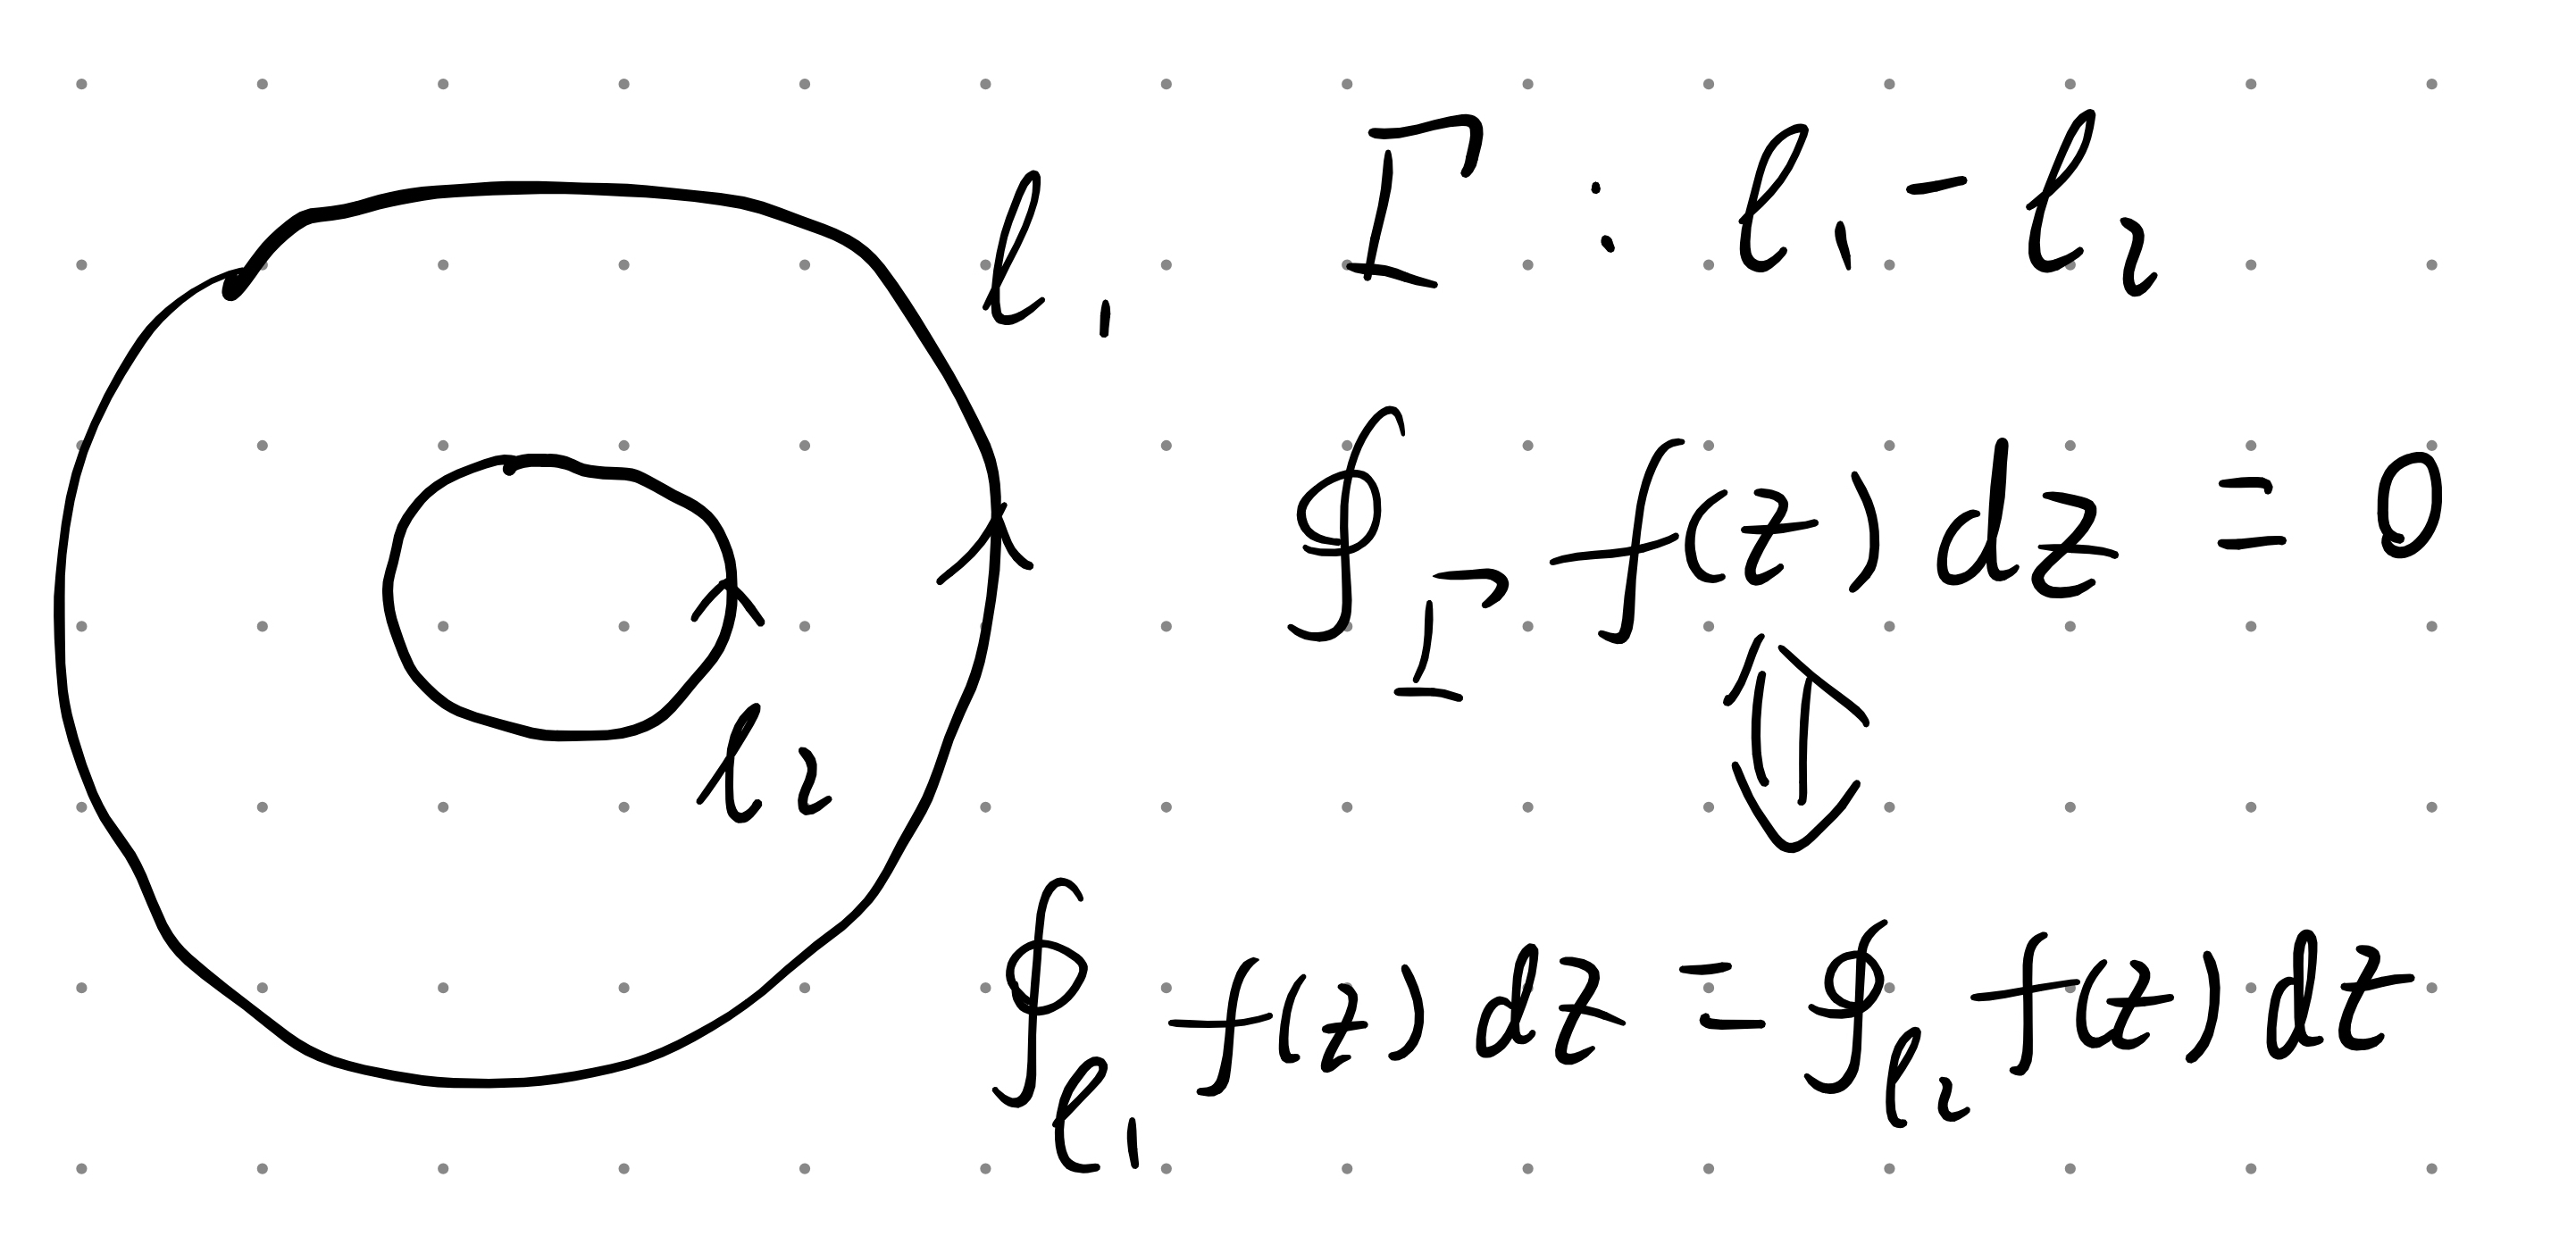 l₁
l₂
Γ : l₁ - l₂
∮_Γ f(z) dz = 0
⇕
∮_l₁ f(z) dz = ∮_l₂ f(z) dz